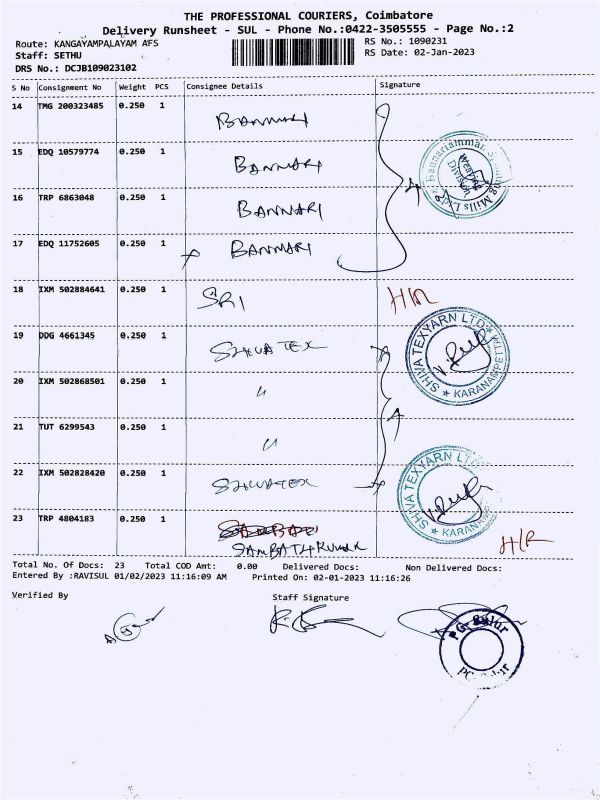 THE PROFESSIONAL COURIERS, Coimbatore
Delivery Runsheet - SUL - Phone No.:0422-3505555 - Page No.:2
Route: KANGAYAMPALAYAM AFS
RS No.: 1090231
Staff: SETHU
RS Date: 02-Jan-2023
DRS No.: DCJB109023102
S No Consignment No Weight PCS Consignee Details Signature
14 TMG 200323485 0.250 1 BANNARI
15 EDQ 10579774 0.250 1 BANNARI
16 TRP 6863048 0.250 1 BANNARI
17 EDQ 11752605 0.250 1 BANNARI
Bannariammar Spinning Mills Ltd
Weaving Division
18 IXM 502884641 0.250 1 SRI H/R
19 DDG 4661345 0.250 1 SHIVA TEX
SHIVA TEXYARN LTD
KARANAMPETTAI
20 IXM 502868501 0.250 1 "
21 TUT 6299543 0.250 1 "
22 IXM 502828420 0.250 1 SHIVATEX
SHIVA TEXYARN LTD
23 TRP 4804183 0.250 1 H/R
Total No. Of Docs: 23 Total COD Amt: 0.00 Delivered Docs: Non Delivered Docs:
Entered By :RAVISUL 01/02/2023 11:16:09 AM Printed On: 02-01-2023 11:16:26
Verified By Staff Signature